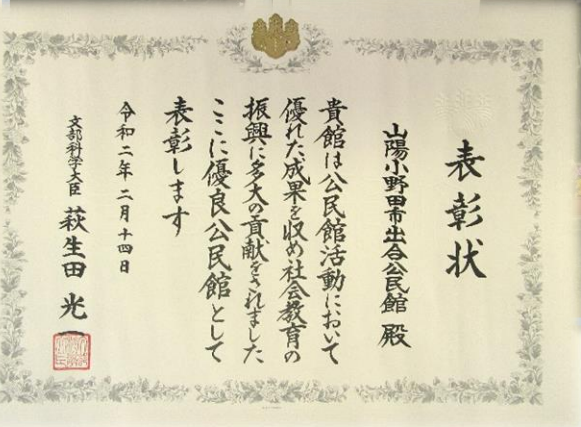 表彰状
山陽小野田市出合公民館 殿
貴館は公民館活動において
優れた成果を収め社会教育の
振興に多大の貢献をされました
ここに優良公民館として
表彰します
令和二年二月十四日
文部科学大臣 萩生田 光一